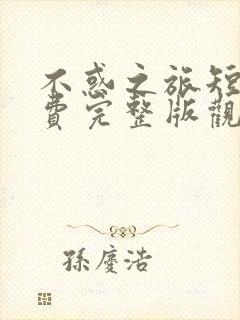 不惑之旅短
費完整版觀
孫慶浩